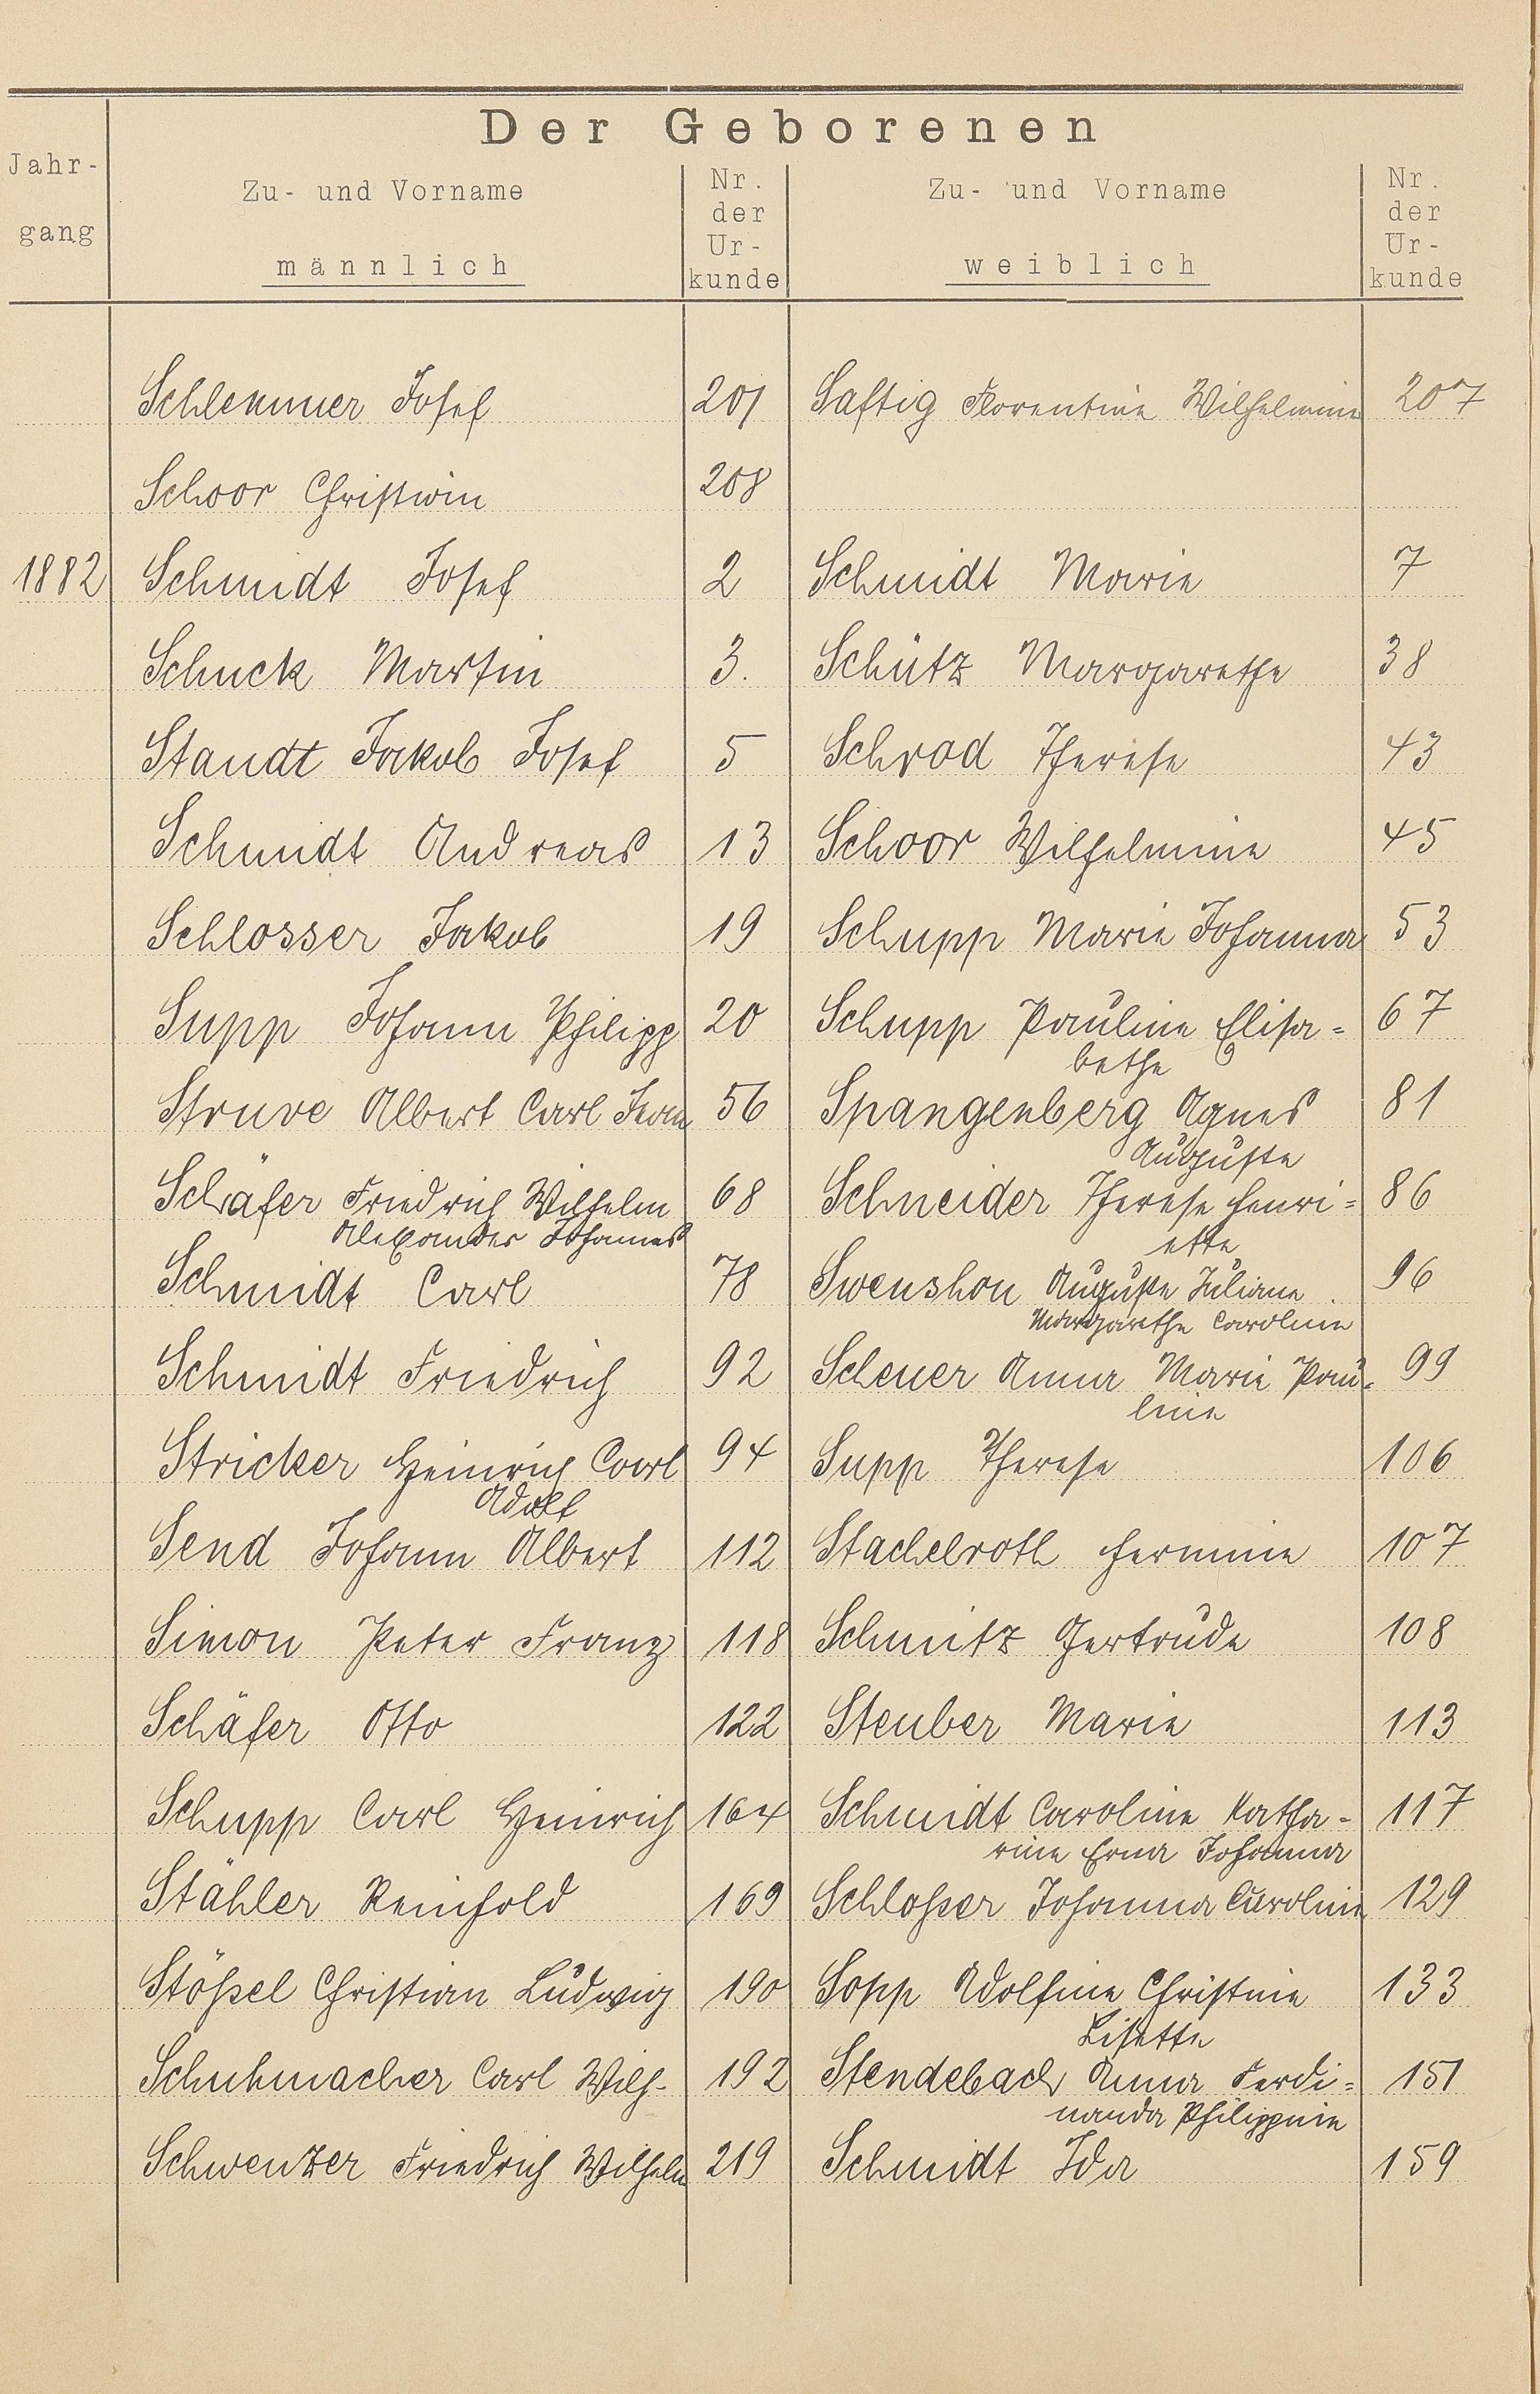 Der Geborenen
Jahr-
gang
Zu- und Vorname
männlich
Nr.
der
Ur-
kunde
Zu- und Vorname
weiblich
Nr.
der
Ur-
kunde
Schlemmer Josef 201 Saftig Florentine Wilhelmine 207
Schoor Christian 208
1882 Schmidt Josef 2 Schmidt Marie 7
Schuck Martin 3. Schütz Margarethe 38
Staudt Jakob Josef 5 Schrod Therese 43
Schmidt Andreas 13 Schoor Wilhelmine 45
Schlosser Jakob 19 Schupp Marie Johanna 53
Supp Johann Philipp 20 Schupp Pauline Elisa= 67
bethe
Struve Albert Carl Iwan 56 Spangenberg Agnes 81
Auguste
Schäfer Friedrich Wilhelm 68 Schneider Therese Henri= 86
Alexander Johannes
ette
Schmidt Carl 78 Swenshon Auguste Juliane 96
Margarethe Caroline
Schmidt Friedrich 92 Scheuer Anna Marie Pau= 99
line
Stricker Heinrich Carl 94 Supp Therese 106
Adolf
Send Johann Albert 112 Stachelroth Hermine 107
Simon Peter Franz 118 Schmitz Gertrude 108
Schäfer Otto 122 Steuber Marie 113
Schupp Carl Heinrich 164 Schmidt Caroline Katha= 117
rine Erna Johanna
Stähler Reinhold 169 Schloßer Johanna Caroline 129
Stößel Christian Ludwig 190 Sopp Adolfine Christine 133
Lisette
Schuhmacher Carl Wilh. 192 Stendebach Anna Ferdi= 151
nanda Philippine
Schwenzer Friedrich Wilhelm 219 Schmidt Ida 159